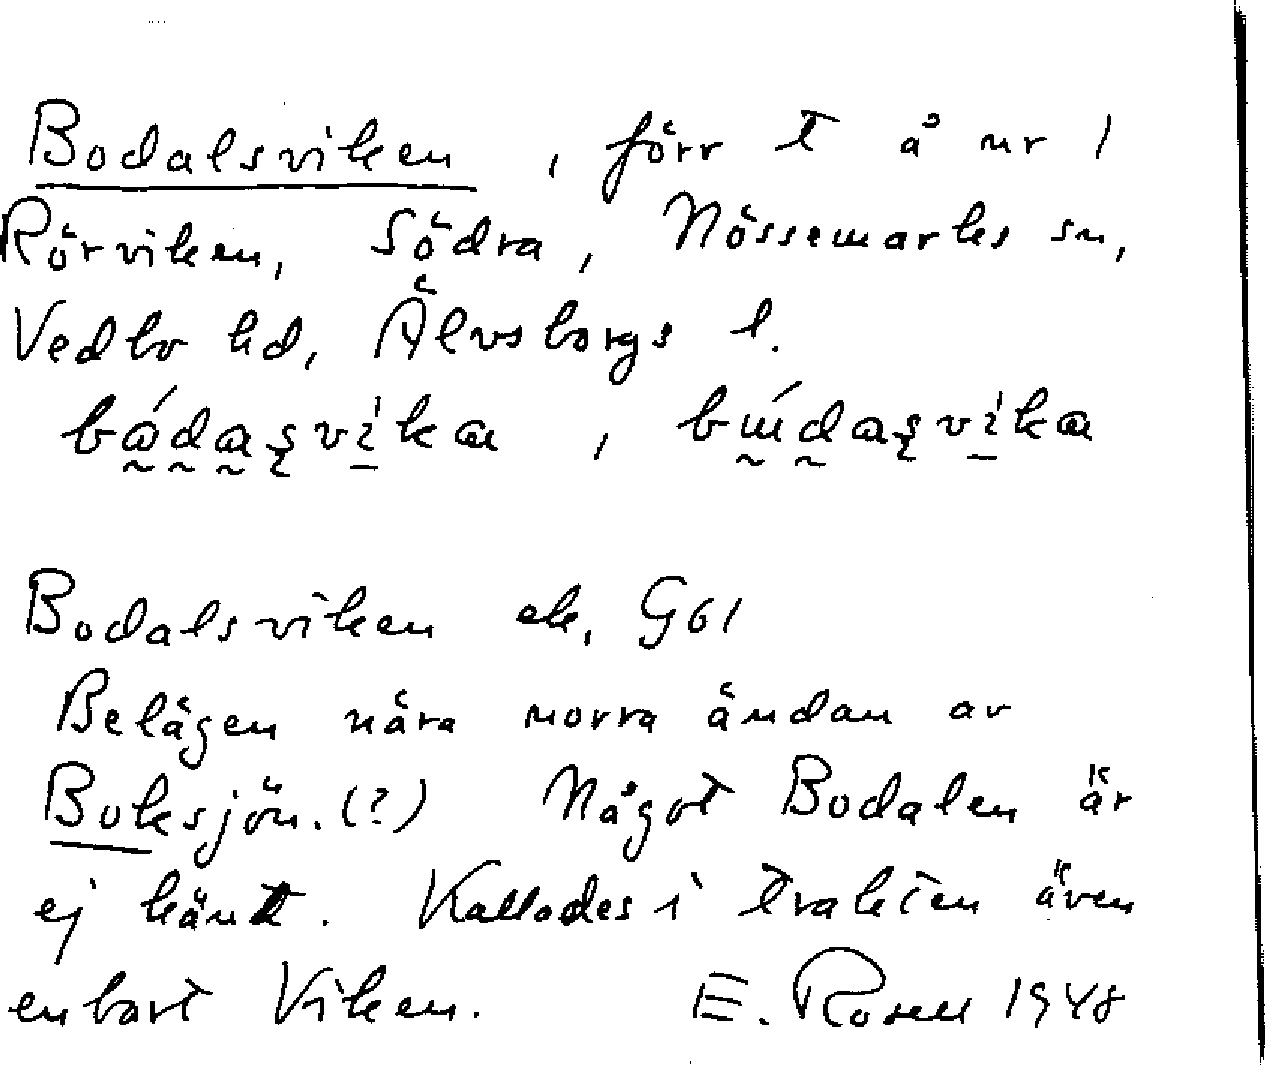 Bodalsviken, förr t å nr 1
Rörviken, Södra, Nössemarks sn,
Vedbo hd, Älvsborgs l.
Bodalsviken ek, G61
Belägen nära norra ändan av
Boksjön. (?) Något Bodalen är
ej känt. Kallades i trakten även
enbart Viken. E. Rosell 1948